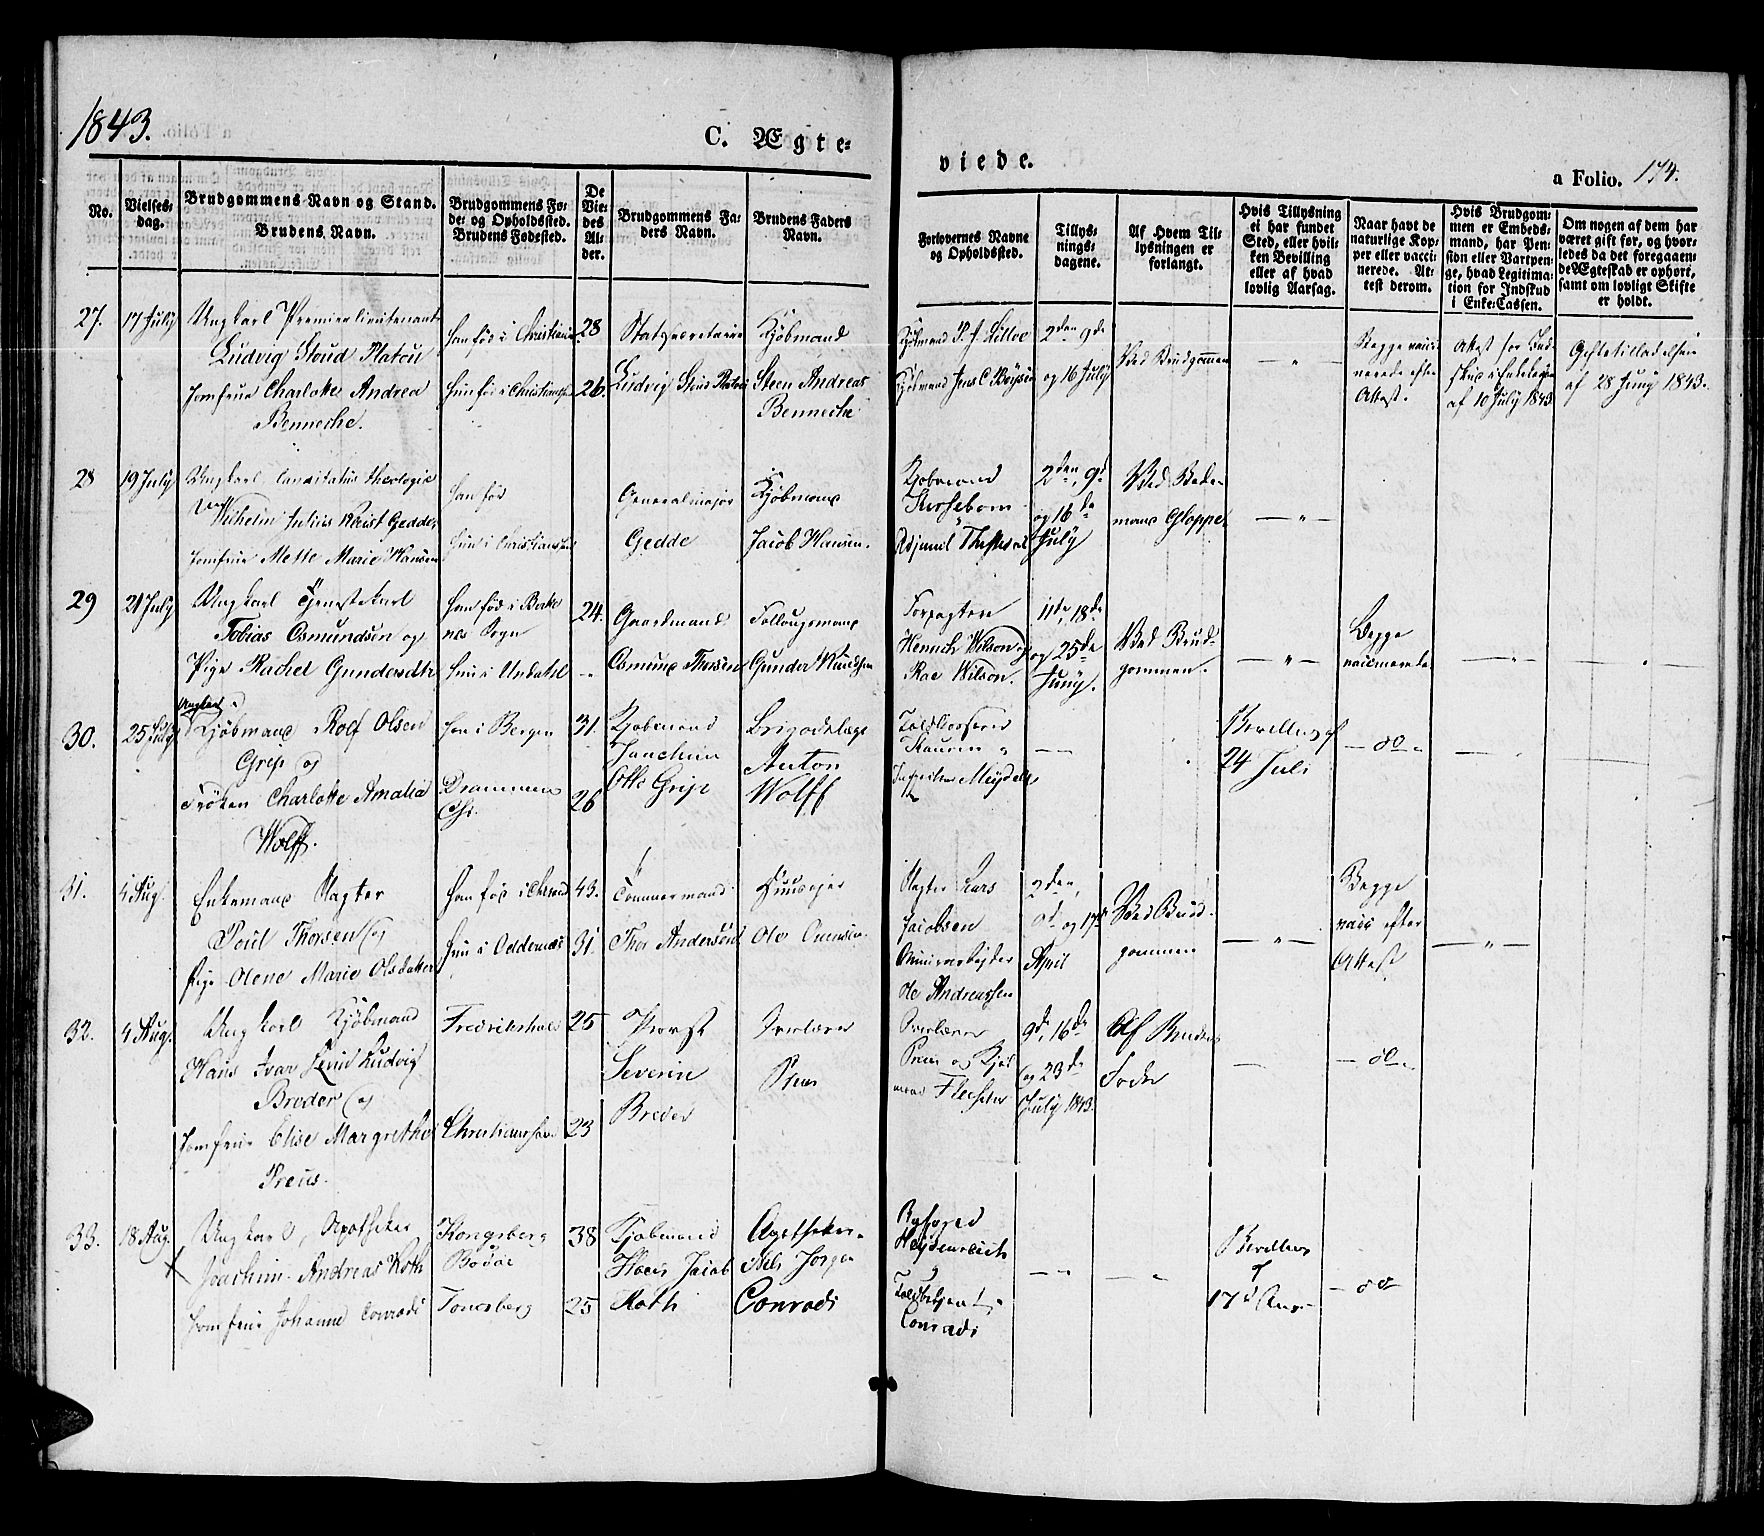 1843.
C. Ægte-
viede.
a Folio. 174.
No.
Vielses-
dag.
Brudgommens Navn og Stand.
Brudens Navn.
Brudgommens Fø-
de- og Opholdssted.
Brudens Fødested.
De
Vie-
des
Al-
der.
Brudgommens Fa-
ders Navn.
Brudens Faders
Navn.
Forlovernes Navne
og Opholdssted.
Tillys-
nings-
dagene.
Af Hvem Til-
lysningen er
forlangt.
Hvis Tillysning
ei har fundet
Sted, eller hvil-
ken Bevilling
eller af hvad
lovlig Aarsag.
Naar havt de
naturlige Kop-
per eller vacci-
nerede. At-
test derom.
Hvis Brudgom-
men er Embeds-
mand, har Pen-
sion eller Vartpen-
ge, hvad Legitima-
tion for Indskud
i Enke-Cassen.
Om nogen af dem har
været gift før, og hvor-
ledes da det foregaaen-
de Ægteskab er ophørt,
samt om lovligt Skifte
er holdt.
27.
17 July
Ungkarl Premierlieutenant
Ludvig Stoud Platou
Jomfrue Charlotte Andrea
Bennecke.
Han fød i Christiania
Hun fød i Christiansand
28
26.
Statssecretair
Ludvig Stoud Platou
Kjøbmand
Steen Andreas
Bennecke
Kjøbmand
Kjøbmand Jens C Boysen
2den 9de
og 16 July
Ved Brudgommen
— " —
Begge vacci
nerede efter
Attest.
Attest for Ind
skud i Enkekassen
af 10 July 1843
Giftetilladelsen
af 28 Juny 1843.
28
19 July
Ungkarl Candidatus theologie
Wilhelm Julius Gedde
Jomfrue Mette Marie Hansen
Han fød
Hun i Christiansand
Generalmajor
Gedde
Kjøbmand
Jacob Hansen.
Kjøbmand
2den, 9de
og 16de
July
Ved Bede-
mand Gloppe
— " —
29
21 July
Ungkarl Tjenestekarl
Tobias Osmundsen og
Pige Rachel Gundersdtr
Han fød i Bakke
nes Sogn
Hun i Undahl
24.
-"
Gaardmand
Osmund Thorsen
Gunder Knudsen
Forpagter
Henrich Wilson og
Rae Wilson.
11de, 18de
og 25de
Juny.
Ved Brud
gommen.
— " —
Begge
vaccinerede
— " —
— " —
30.
25 July
Ungkarl
Kjøbmand Rolf Olsen
Grip og
Frøken Charlotte Amalia
Wolff.
Han i Bergen
Drammen
31.
26
Kjøbmand
Joachim
Otto Grip
Brigadelæge
Anton
Wolff
— —
Bevilling af
24 Juli
— do —
— " —
31.
4 Aug.
Enkemand Slagter
Poul Thorsen og
Pige Olene Marie Olsdatter
Han fød i Chrsand
Hun i Oddernæs
43.
31.
Tømmermand
Thor Andersen
Huuseier
Ole
Slagter Lars
Jacobsen
Ole Andreassen
2den,
9de og 17de
April
Ved Brud-
gommen
— " —
Begge
vacc efter
Attest
— " —
32.
4 Aug.
Ungkarl Kjøbmand
Hans Ivar Ludvig
Breder og
Jomfrue Elise Margrethe
Preus.
Fredrikshald
Christianssand
25
23
Provst
Severin
Breder
Overlærer
Preus
Overlærer
Preus og Kjøb
mand
9de, 16de
og 23de
July 1843.
Af Brudens
Fader
—
— do —
33.
18 Aug.
Ungkarl, Apotheker
Joachim Andreas Roth
Jomfrue Johanne Conradi
Kongsberg
Bodøe
Tonsberg
38
25
Kjøbmand
Jacob
Roth
Apotheker
Nils Jørgen
Conradi
Byfoged
Heydenreich
og
Conradi
— " —
— " —
Bevilling
af
17d Aug
— do —